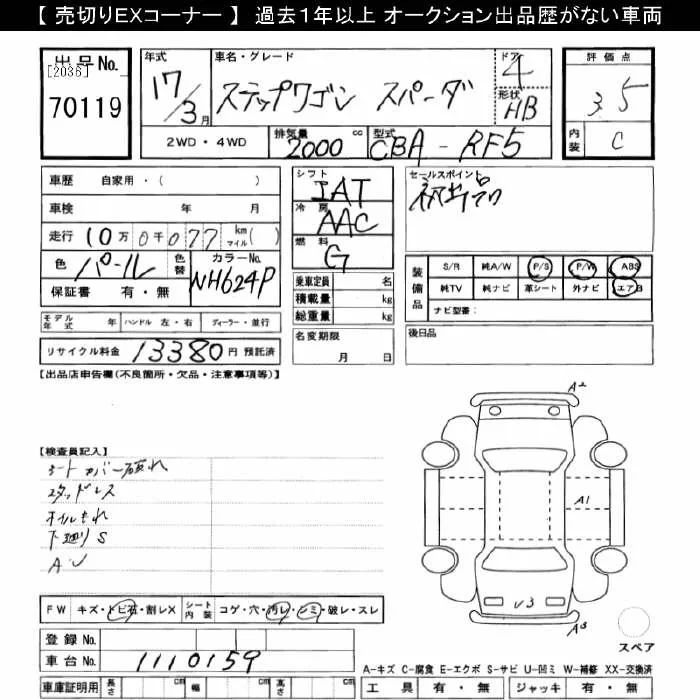 【 売切りEXコーナー 】 過去1年以上 オークション出品歴がない車両
出品No. [2036] 70119
年式 17/3月
車名・グレード ステップワゴン スパーダ
ドア 4
形状 HB
評価点 3.5
内装 C
2WD・4WD
排気量 2000 cc
型式 CBA-RF5
車歴 自家用・( )
車検 年 月
走行 10万0千077 km マイル( )
色 パール 色替
カラーNo. NH624P
保証書 有・無
シフト IAT
冷房 AAC
燃料 G
乗車定員 名
積載量 kg
総重量 kg
セールスポイント
初出品
装備品 S/R 純A/W P/S P/W ABS
純TV 純ナビ 革シート 外ナビ エアB
ナビ型番:
モデル年式 年 ハンドル 左・右 ディーラー・並行
名変期限 月 日
後日品
リサイクル料金 13380円 預託済
【出品店申告欄(不良箇所・欠品・注意事項等)】
【検査員記入】
シートカバー破れ
スタッドレス
オイルもれ
下廻りS
AU
A2
A1
U3
A3
スペア
FW キズ・トビ石・割レX シート内装 コゲ・穴・汚レ・シミ・破レ・スレ
登録No.
車台No. 1110159
A-キズ C-腐食 E-エクボ S-サビ U-凹ミ W-補修 XX-交換済
車庫証明用 長さ cm 幅 cm 高さ cm
工具 有・無 ジャッキ 有・無